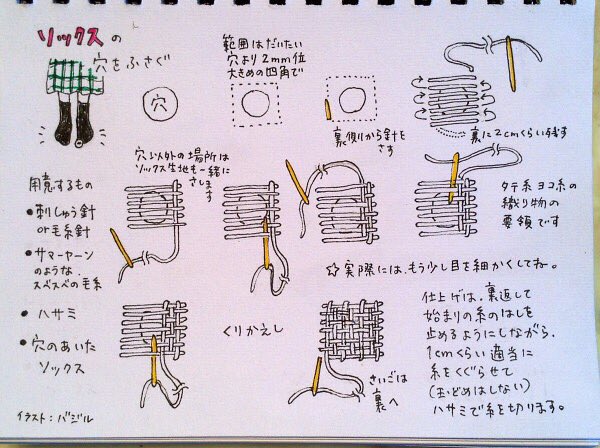 ソックスの
穴をふさぐ
穴
範囲はだいたい
穴より2mm位
大きめの四角で
裏側から針を
さす
裏に2cmくらい残す
穴以外の場所は
ソックス生地も一緒に
さします
タテ糸ヨコ糸の
織り物の
要領です
☆実際には、もう少し目を細かくしてね。
用意するもの
●刺しゅう針
or毛糸針
●サマーヤーン
のような
スベスベの毛糸
●ハサミ
●穴のあいた
ソックス
くりかえし
さいごは
裏へ
仕上げは、裏返して
始まりの糸のはしを
止めるようにしながら、
1cmくらい適当に
糸をくぐらせて
(玉どめはしない)
ハサミで糸を切ります。
イラスト:バジル